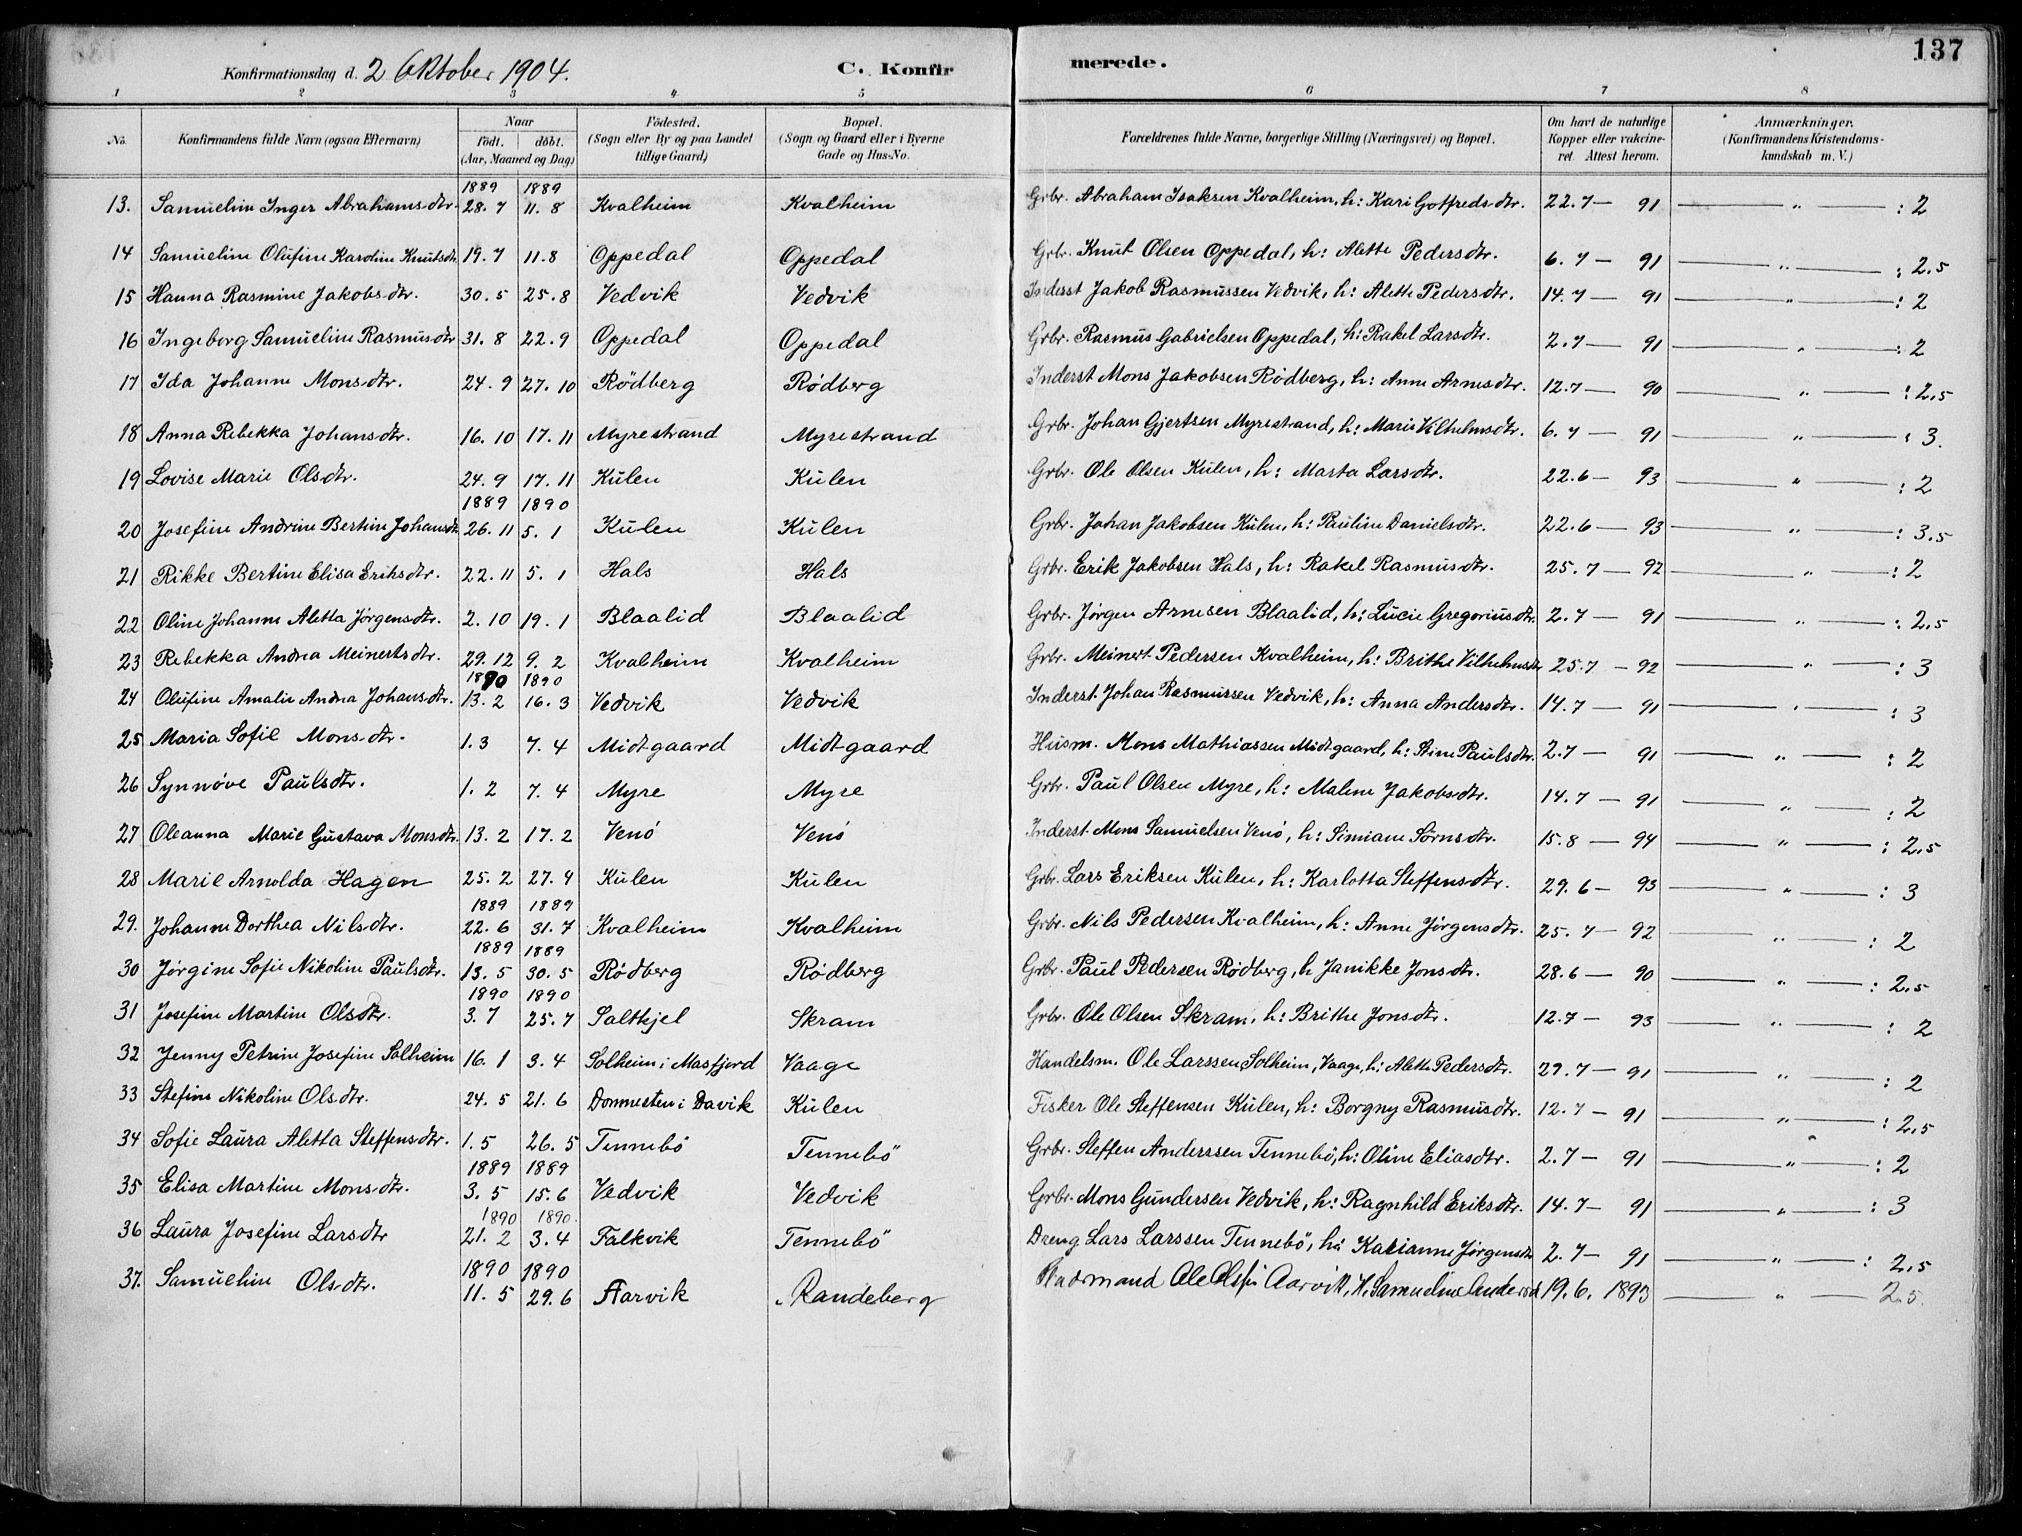 137
Konfirmationsdag d. 2 Oktober 1904. C. Konfirmerede.
1 2 3 4 5 6 7 8
No. Konfirmandens fulde Navn (ogsaa Efternavn) Naar født. døbt. (Aar, Maaned og Dag) Fødested. (Sogn eller By og paa Landet tillige Gaard) Bopæl. (Sogn og Gaard eller i Byerne Gade og Hus-No. Forældrenes fulde Navne, borgerlige Stilling (Næringsvei) og Bopæl. Om havt de naturlige Kopper eller vakcineret. Attest herom. Anmærkninger. (Konfirmandens Kristendomskundskab m. V.)
1889 1889
13. Samueline Inger Abrahamsdtr. 28.7 11.8 Kvalheim Kvalheim Grbr. Abraham Isaksen Kvalheim, h: Kari Gotfredsdtr. 22.7 — 91 — „ — : 2
14 Samueline Olufine Karoline Knutsdtr 19.7 11.8 Oppedal Oppedal Grbr. Knut Olsen Oppedal, h: Alette Pedersdtr. 6.7 — 91 — „ — : 2,5
15 Hanna Rasmine Jakobsdtr. 30.5 25.8 Vedvik Vedvik Inderst Jakob Rasmussen Vedvik, h: Alette Pedersdtr. 14.7 — 91 — „ — : 2
16 Ingeborg Samueline Rasmusdtr 31.8 22.9 Oppedal Oppedal Grbr. Rasmus Gabrielsen Oppedal, h: Rakel Larsdtr. 2.7 — 91 — „ — : 2
17 Ida Johanne Monsdtr. 24.9 27.10 Rödberg Rödberg Inderst Mons Jakobsen Rödberg, h: Anne Arnesdtr. 12.7 — 90 — „ — : 2,5
18 Anna Rebekka Johansdtr. 16.10 17.11 Myrestrand Myrestrand Grbr. Johan Gjertsen Myrestrand, h: Marie Vilhelmsdtr. 6.7 — 91 — „ — : 3.
19 Lovise Marie Olsdtr. 24.9 17.11 Kulen Kulen Grbr. Ole Olsen Kulen, h: Marta Larsdtr. 22.6 — 93 — „ — : 2
1889 1890
20 Josefine Andrine Bertine Johansdtr 26.11 5.1 Kulen Kulen Grbr. Johan Jakobsen Kulen, h: Pauline Danielsdtr. 22.6 — 93 — „ — : 3,5
21 Rikke Bertine Elisa Eriksdtr. 22.11 5.1 Hals Hals Grbr. Erik Jakobsen Hals, h: Rakel Rasmusdtr. 25.7 — 92 — „ — : 2
22 Oline Johanne Aletta Jørgensdtr. 2.10 19.1 Blaalid Blaalid Grbr. Jørgen Arnesen Blaalid, h: Lucie Gregoriusdtr. 2.7 — 91 — „ — : 2,5
23 Rebekka Andrea Meinertsdtr. 29.12 9.2 Kvalheim Kvalheim Grbr. Meinert Pedersen Kvalheim, h: Brithe Vilhelmsdtr 25.7 — 92 — „ — : 3
1890 1890
24 Olufine Amalie Andrea Johansdtr. 13.2 16.3 Vedvik Vedvik Inderst. Johan Rasmussen Vedvik, h: Anna Andersdtr. 14.7 — 91 — „ — : 3
25 Maria Sofie Monsdtr. 1.3 7.4 Midtgaard Midtgaard Husm. Mons Mathiassen Midtgaard, h: Stine Paulsdtr. 2.7 — 91 — „ — : 2
26 Synnöve Paulsdtr. 1.2 7.4 Myre Myre Grbr. Paul Olsen Myre, h: Malene Jakobsdtr. 14.7 — 91 — „ — : 2
27 Oleanna Marie Gustava Monsdtr. 13.2 17.2 Venö Venö Inderst. Mons Samuelsen Venö, h: Simiane Sørnsdtr. 15.8 — 94 — „ — : 2,5
28 Marie Arnolda Hagen 25.2 27.4 Kulen Kulen Grbr. Lars Eriksen Kulen, h: Karlotta Steffensdtr. 29.6 — 93 — „ — : 3
1889 1889
29. Johanne Dorthea Nilsdtr. 22.6 31.7 Kvalheim Kvalheim Grbr. Nils Pedersen Kvalheim, h: Anne Jørgensdtr. 25.7 — 92 — „ — : 2
1889 1889
30 Jørgine Sofie Nikoline Paulsdtr. 13.5 30.5 Rødberg Rødberg Grbr. Paul Pedersen Rødberg, h Janikke Jonsdtr. 28.6 — 90 — „ — : 2,5
1890 1890
31 Josefine Martine Olsdtr. 3.7 25.7 Saltkjel Skram Grbr. Ole Olsen Skram, h: Brithe Jonsdtr. 12.7 — 93 — „ — : 2
32 Jenny Petrine Josefine Solheim 16.1 3.4 Solheim i Masfjord Vaage Handelsm. Ole Larssen Solheim, Vaage, h: Alette Pedersdtr. 29.7 — 91 — „ — : 2
33 Stefine Nikoline Olsdtr. 24.5 21.6 Dommesten i Davik Kulen Fisker Ole Steffensen Kulen, h: Borgny Rasmusdtr. 12.7 — 91 — „ — : 2,5
34 Sofie Laura Aletta Steffensdtr. 1.5 26.5 Tennebö Tennebö Grbr. Steffen Anderssen Tennebö, h: Oline Eliasdtr. 2.7 — 91 — „ — : 2
1889 1889
35 Elisa Martine Monsdtr. 3.5 15.6 Vedvik Vedvik Grbr. Mons Gundersen Vedvik, h: Ragnhild Eriksdtr. 14.7 — 91 — „ — : 3
1890 1890
36 Laura Josefine Larsdtr 21.2 3.4 Falkvik Tennebö Dreng Lars Larssen Tennebö, h: Karianne Jørgensdtr 2.7 — 91 — „ — : 2,5
1890 1890
37. Samueline Olsdtr. 11.5 29.6 Aarvik Randeberg Ole Olsen Aarvik, H. Samueline Andersd 19.6. 1893 — „ — 2.5.